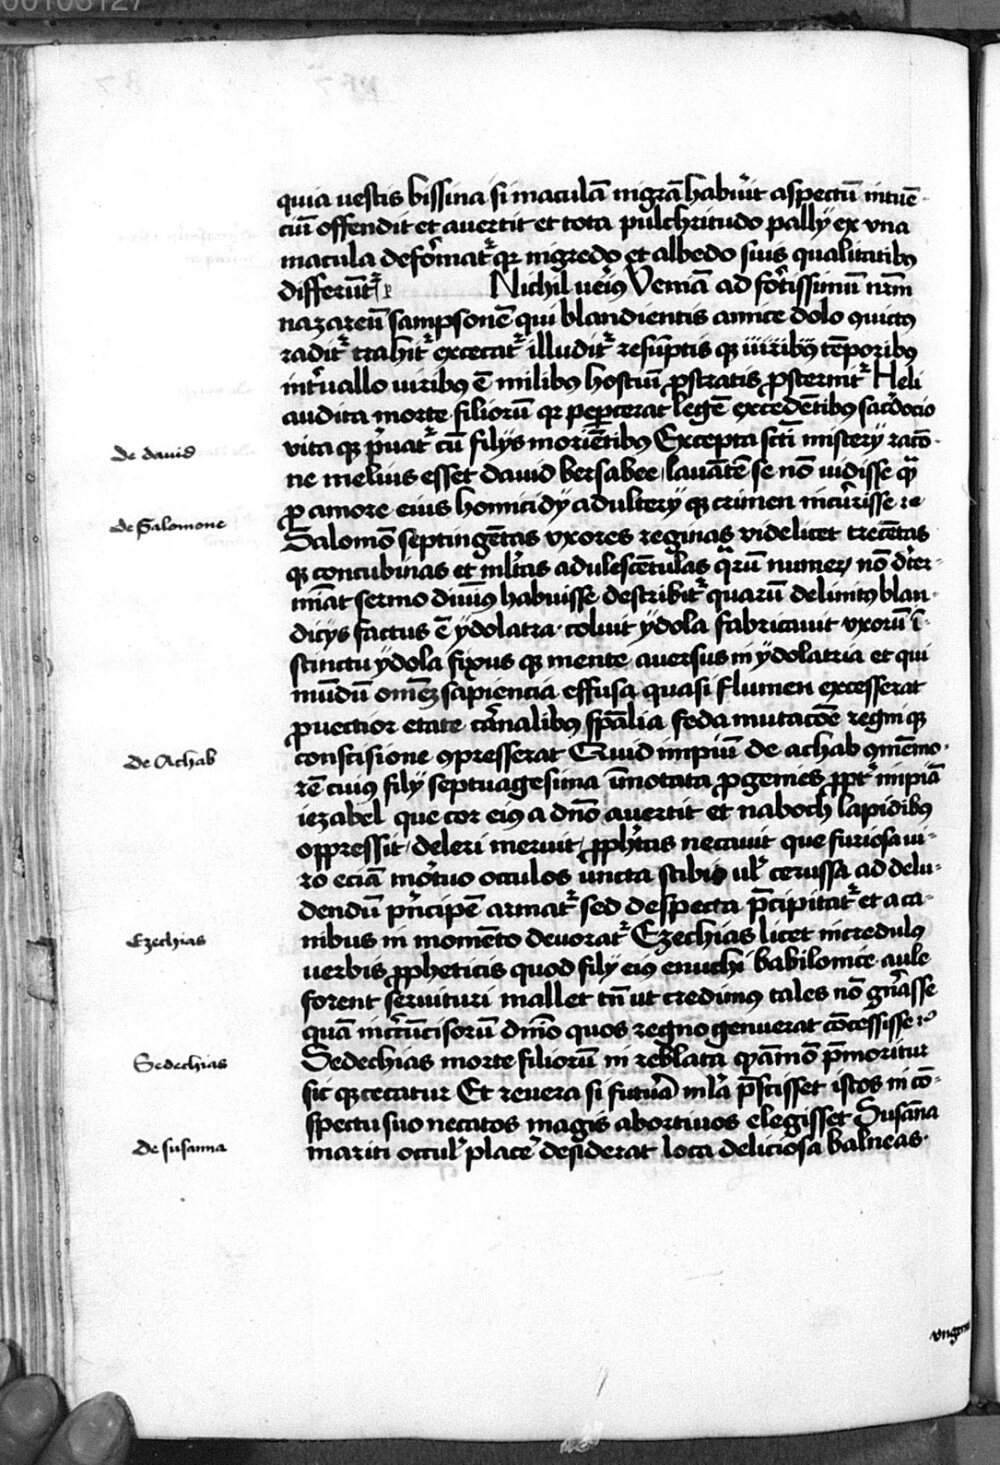 00103127
quia uestis bissina si maculā nigrā habu'it aspectū intuē-
ciū offendit et auertit et tota pulchritudo pally ex vna
macula defōmat' qr nigredo et albedo suis qualitatibȝ
differūt' Nichil Veniā ad fōtissimū nr̄m
nazareū sampsonē qui blandientis amice dolo ꝯuictȝ
radit' trahit' excecat' illudit' resūptis qȝ uiribȝ tēporibȝ
int'uallo uiribȝ ē milibȝ hostiū ꝓstratis ꝓsternit' Heli
audita morte filiorū qr pepcerat legē excedētibȝ sac'docio
vita qȝ p'uat' cū filijs moriētibȝ Excepta sc̄ti mistery racō-
ne melius esset dauid bersabee lauātē se nō uidisse qȝ̄
ꝓ amore eius homicidy adultery qȝ crimen incu'risse
Salomō septingētas vxores reginas videlicet trecētas
qȝ concubinas et ml'tas adulescētulas q'rū numer nō d't'er-
miāt sermo diuinȝ habuisse describit' quarū delinitȝ blan-
dicys factus ē ydolatra coluit ydola fabricauit vxorū ī-
stinctu ydola fixus qȝ mente auersus in ydolatria et qui
mūdū omēȝ sapiencia effusa quasi flumen excesserat
ꝓuectior etate ca'nalibȝ sp̄alia feda mutacōe regni qȝ
conscisione ꝯpresserat Quid impiū de achab ꝯmēmo-
rē cuius fily septuagesima īnotata ꝓgenies ꝓpt' impiā
iezabel que cor eiȝ a dn̄o auertit et naboch lapidibȝ
oppressit deleri meruit ꝓph'tas necauit que furiosa ui-
ro eciā mo'tuo occulos uncta stibio ul' cerussa ad delu-
dendū p'ncipē armat' sed despecta p̄cipitat' et a ca-
nibus in momēto deuorat' Ezechias licet incredulȝ
uerbis ꝓpheticis quod fily eiȝ enuchi babilonice aule
forent seruituri mallet tn̄ ut credimȝ tales nō gn̄asse
quā inc'cūcisorū dn̄io quos regno genuerat cōcessisse
Sedechias morte filiorū in reblata p̄moritur
sic qȝ cecatur Et reuera si futura p̄scisset istos in cō-
spectu suo necatos magis abortiuos elegisset Susāna
mariti occul' place' desiderat loca deliciosa balneas
de dauid
de Salomone
de Achab
Ezechias
Sedechias
de susanna